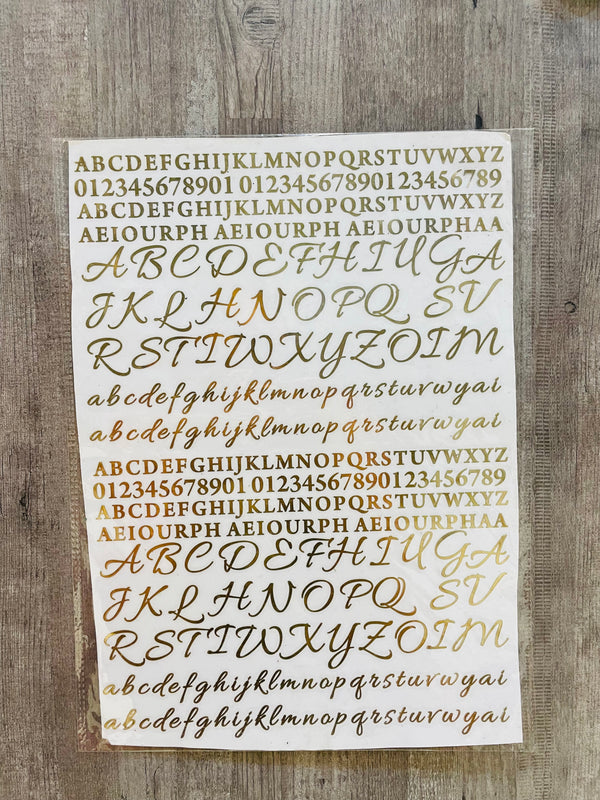 ABCDEFGHIJKLMNOPQRSTUVWXYZ
012345678901 0123456789 0123456789
ABCDEFGHIJKLMNOPQRSTUVWXYZ
AEIOURPH AEIOURPH AEIOURPHAA
ABCDEFHIUGA
JKLHNOPQ SV
RSTIWXYZOIM
abcdefghijklmnopqrsturwyai
abcdefghijklmnopqrsturwyai
ABCDEFGHIJKLMNOPQRSTUVWXYZ
012345678901 0123456789 0123456789
ABCDEFGHIJKLMNOPQRSTUVWXYZ
AEIOURPH AEIOURPH AEIOURPHAA
ABCDEFHIUGA
JKLHNOPQ SV
RSTIWXYZOIM
abcdefghijklmnopqrstuvwyai
abcdefghijklmnopqrstuvwyai